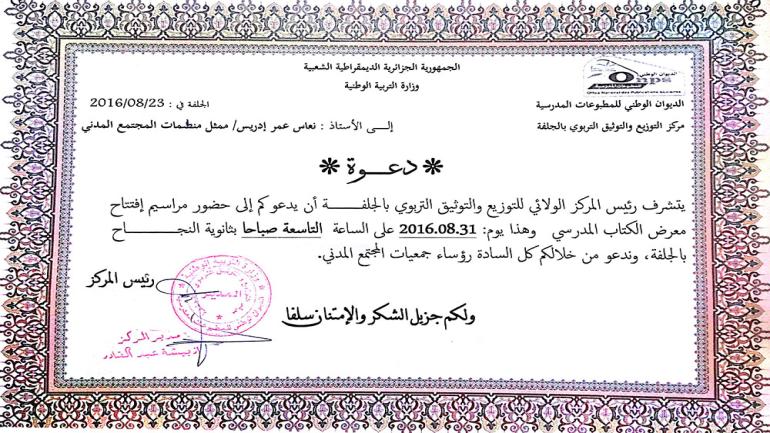 الجمهورية الجزائرية الديمقراطية الشعبية
وزارة التربية الوطنية
الديوان الوطني
Onps
للمطبوعات المدرسية
Office National des Publications Scolaires
الديوان الوطني للمطبوعات المدرسية
الجلفة في : 2016/08/23
مركز التوزيع والتوثيق التربوي بالجلفة
إلــى الأستاذ : نعاس عمر إدريس/ ممثل منظمات المجتمع المدني
* دعـــوة *
يتشرف رئيس المركز الولائي للتوزيع والتوثيق التربوي بالجلفـــــة أن يدعوكم إلى حضور مراسيم إفتتاح
معرض الكتاب المدرسي وهذا يوم: 2016.08.31 على الساعة التاسعة صباحا بثانوية النجـــــــاح
بالجلفة، وندعو من خلالكم كل السادة رؤساء جمعيات المجتمع المدني.
رئيس المركز
المدير
ولكم جزيل الشكر والإمتنان سلفا
مدير المركز
عبد القادر